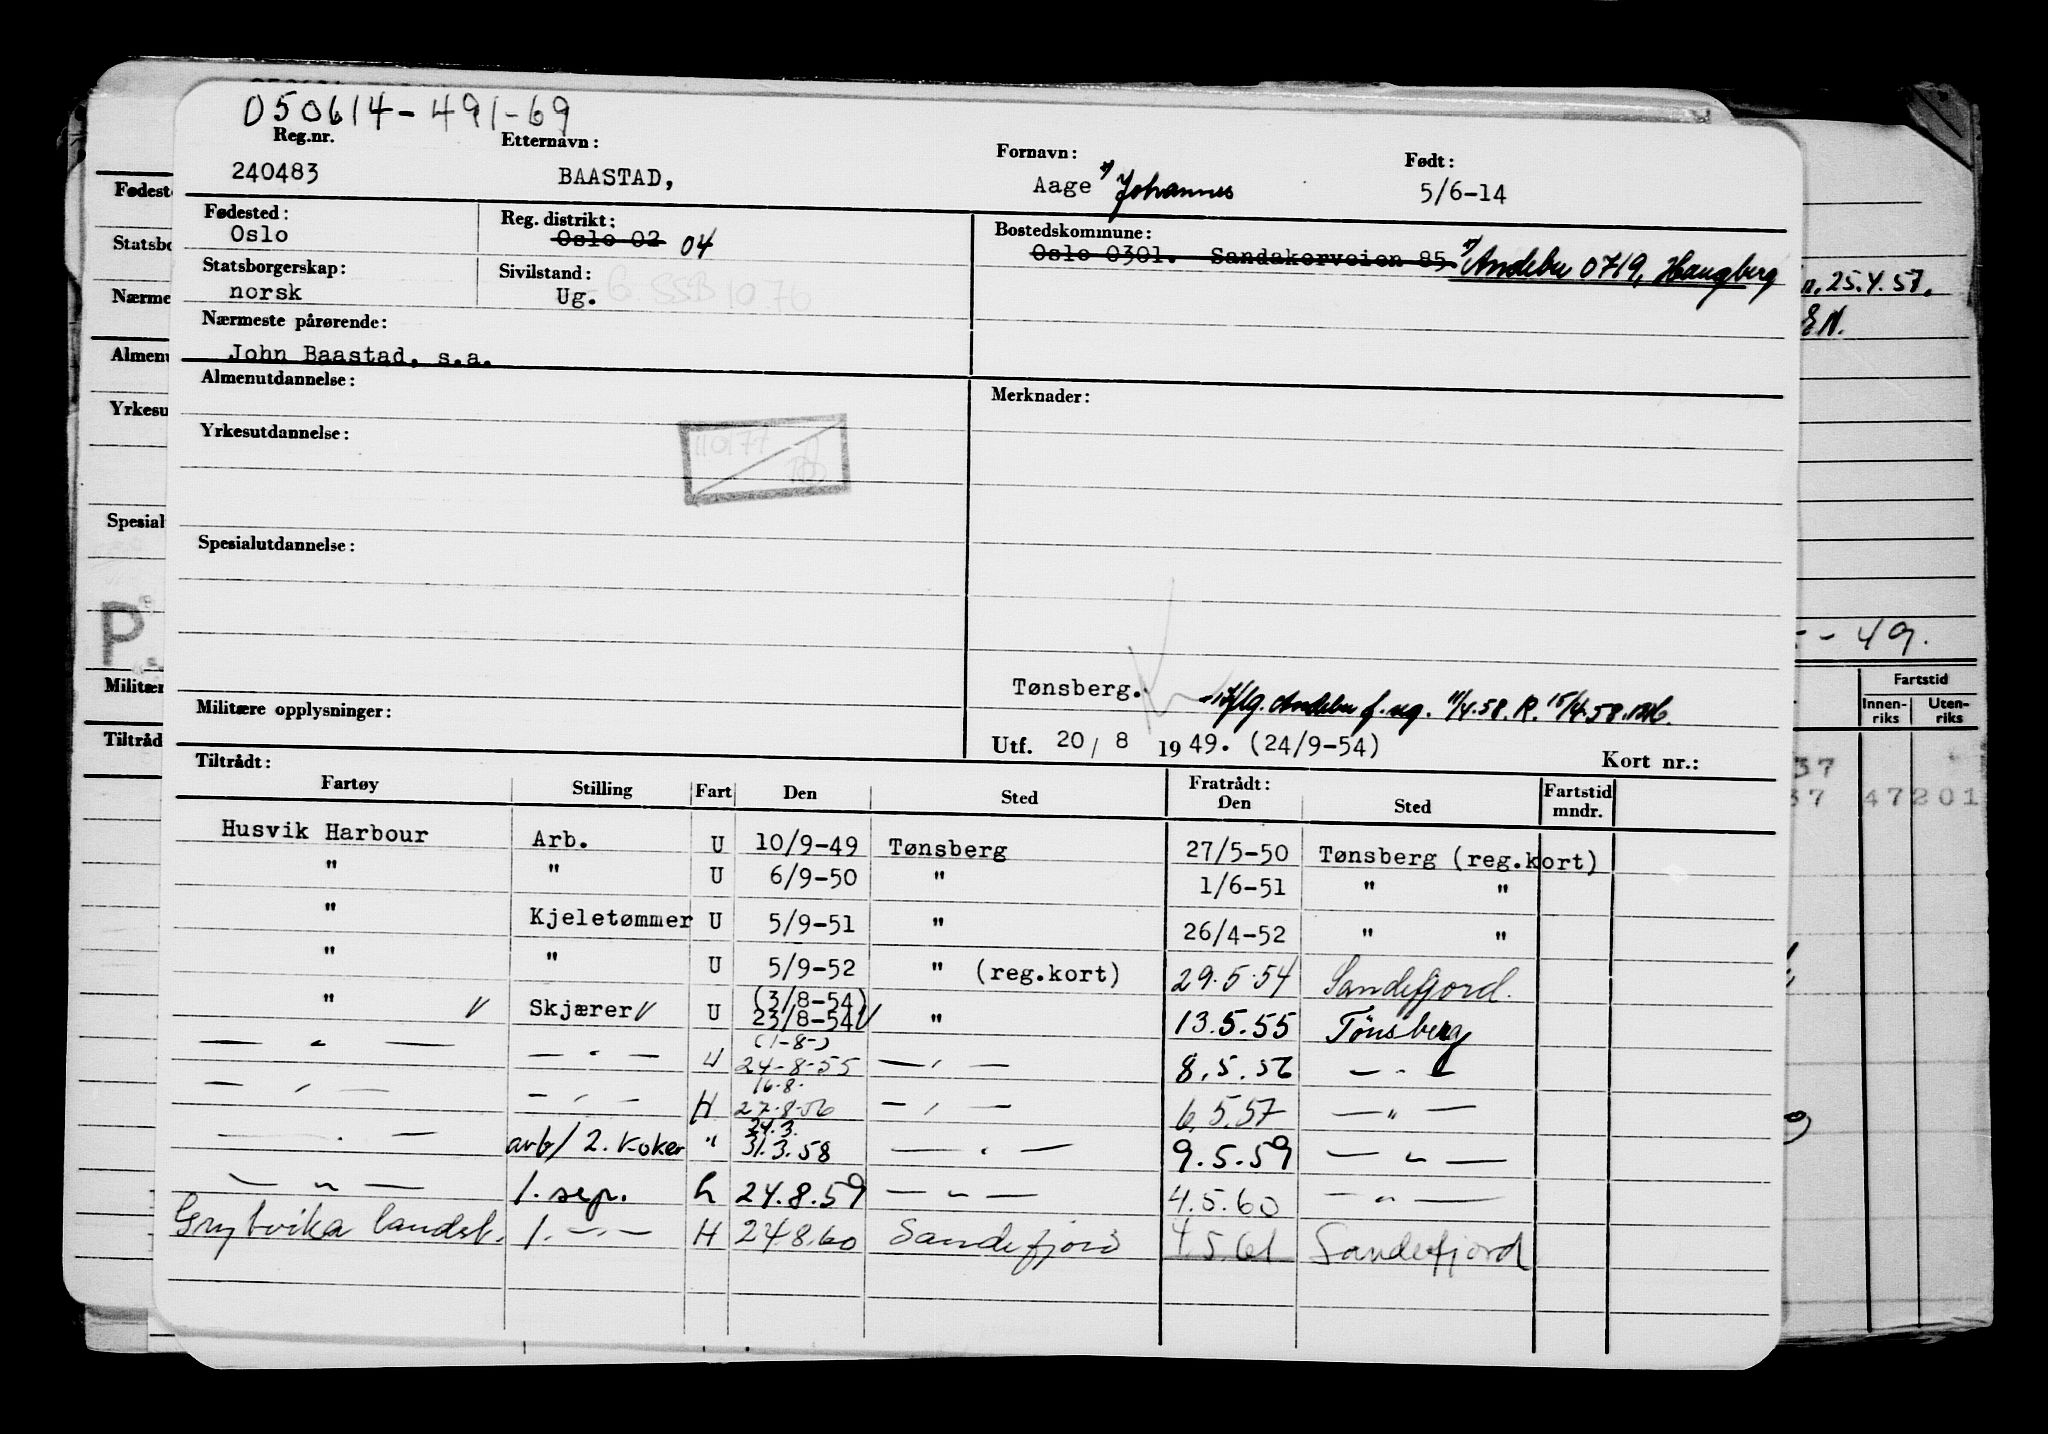 050614-491-69
Reg.nr. Etternavn: Fornavn: Født:
240483 BAASTAD, Aage Johannes 5/6-14
Fødested: Reg. distrikt: Bostedskommune:
Oslo Oslo 02 04 Oslo 0301. Sandakerveien 85 Andebu 0719, Haugberg
Statsborgerskap: Sivilstand:
norsk Ug.
Nærmeste pårørende:
John Baastad, s.a.
Almenutdannelse: Merknader:
Yrkesutdannelse:
Spesialutdannelse:
Tønsberg. Andebu f. reg. 11/4.58. R. 15/4.58.
Militære opplysninger:
Utf. 20/ 8 1949. (24/9-54) Kort nr.:
Tiltrådt: Fratrådt:
Fartøy Stilling Fart Den Sted Den Sted Fartstid mndr.
Husvik Harbour Arb. U 10/9-49 Tønsberg 27/5-50 Tønsberg (reg.kort)
" " U 6/9-50 " 1/6-51 " "
" Kjeletømmer U 5/9-51 " 26/4-52 " "
" " U 5/9-52 " (reg.kort) 29.5.54 Sandefjord.
" V Skjærer V U (3/8-54) 23/8-54 V " 13.5.55 Tønsberg
— " — — " — U (1-8-) 24-8-55 — " — 8.5.56 — " —
— " — — " — H 16.8. 27.8.56 — " — 6.5.57 — " —
— " — arb/ 2. koker " 24.3. 31.3.58 — " — 9.5.59 — " —
— " — 1. sep. h 24.8.59 — " — 4.5.60 — " —
Grytvika landst. 1. — " — H 24.8.60 Sandefjord 4.5.61 Sandefjord
Fødest
Statsbo
Nærme
Almenu
Yrkesu
Spesial
P
Militær
Tiltråd
25.4.57.
EN.
- 49.
Fartstid
Innen-riks Uten-riks
37
37 47201